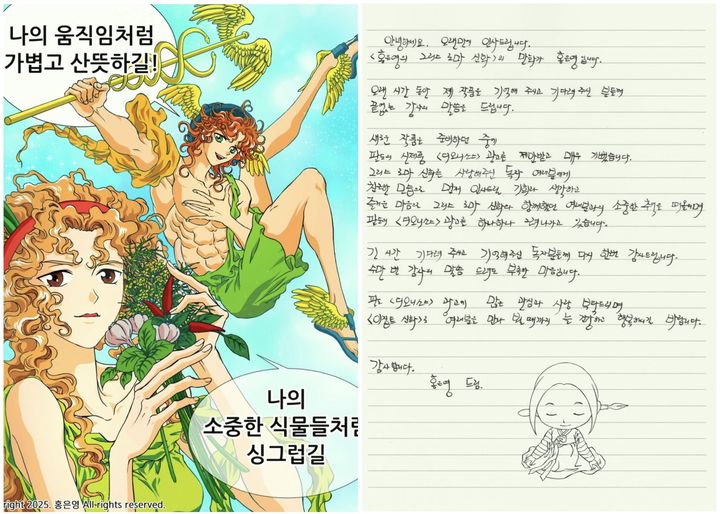 나의 움직임처럼
가볍고 산뜻하길!
나의
소중한 식물들처럼
싱그럽길
right 2025. 홍은영 All rights reserved.
안녕하세요. 오랜만에 인사드립니다.
<홍은영의 그리스 로마 신화>의 만화가 홍은영입니다.
오랜 시간 동안 제 작품을 기억해 주시고 기다려 주신 분들께
끝없는 감사의 말씀을 드립니다.
새로운 작품을 준비하던 중에
팔도의 신제품 <면오니소스> 광고를 제안받고 매우 기뻤습니다.
그리스 로마 신화를 사랑해주신 독자 여러분에게
친숙한 모습으로 먼저 인사드릴 기회라 생각하고
즐거운 마음으로 그리스 로마 신화와 함께했던 여러분과의 소중한 추억을 떠올리며
팔도의 광고를 하나하나 그려나가고 있습니다.
긴 시간 기다려 주시고 기억해주신 독자분들께 다시 한번 감사드립니다.
수만 번 감사의 말씀을 드려도 부족한 마음입니다.
팔도 광고에 많은 관심과 사랑 부탁드리며
<이집트 신화>로 여러분을 만나 뵐 때까지 늘 건강하고 행복하시길 바랍니다.
감사합니다.
홍은영 드림.